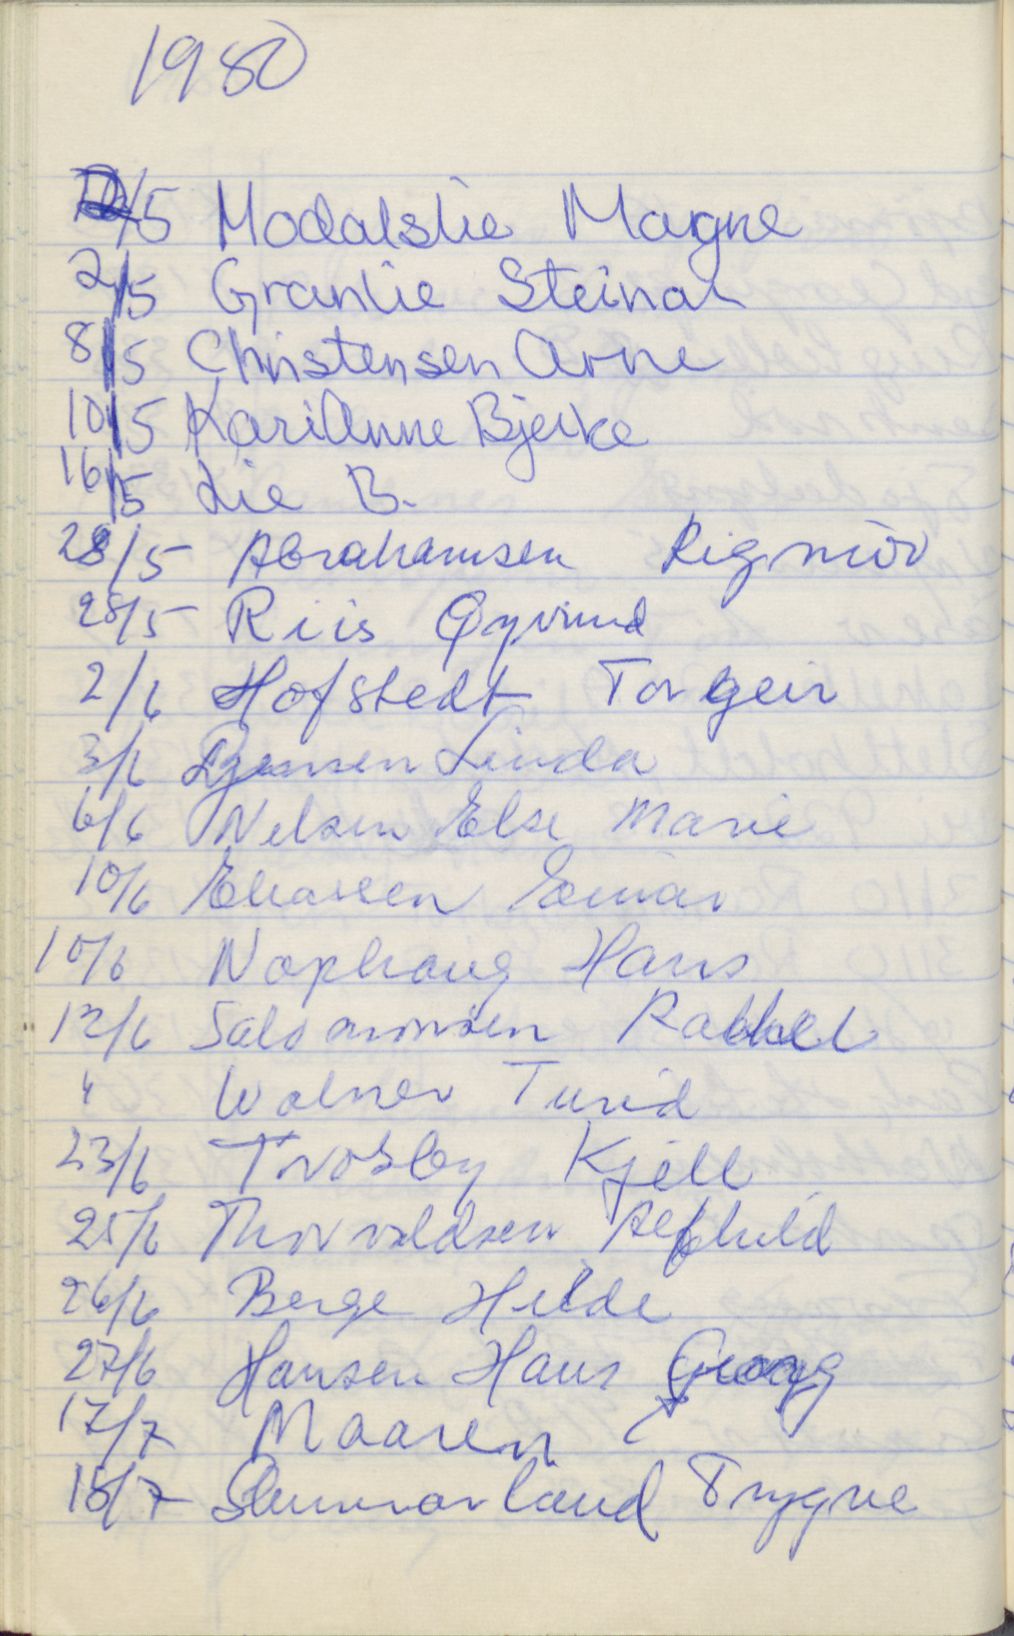 1980
2/5 Modalslie Magne
2/5 Granlie Steinar
8/5 Christensen Arne
10/5 Kari Anne Bjerke
16/5 Lie B.
28/5 Abrahamsen Rigmor
28/5 Riis Øyvind
2/6 Hofstedt Torgeir
3/6 Linda
6/6 Nelsen Else Marie
10/6 Eliassen Einar
10/6 Nophaug Hans
12/6 Salomonsen Rakkel
" Wolner Turid
23/6 Trosby Kjell
25/6 Thorvaldsen Alfhild
26/6 Berge Hilde
27/6 Hansen Hans Georg
17/7 Maaren
18/7 Trygve